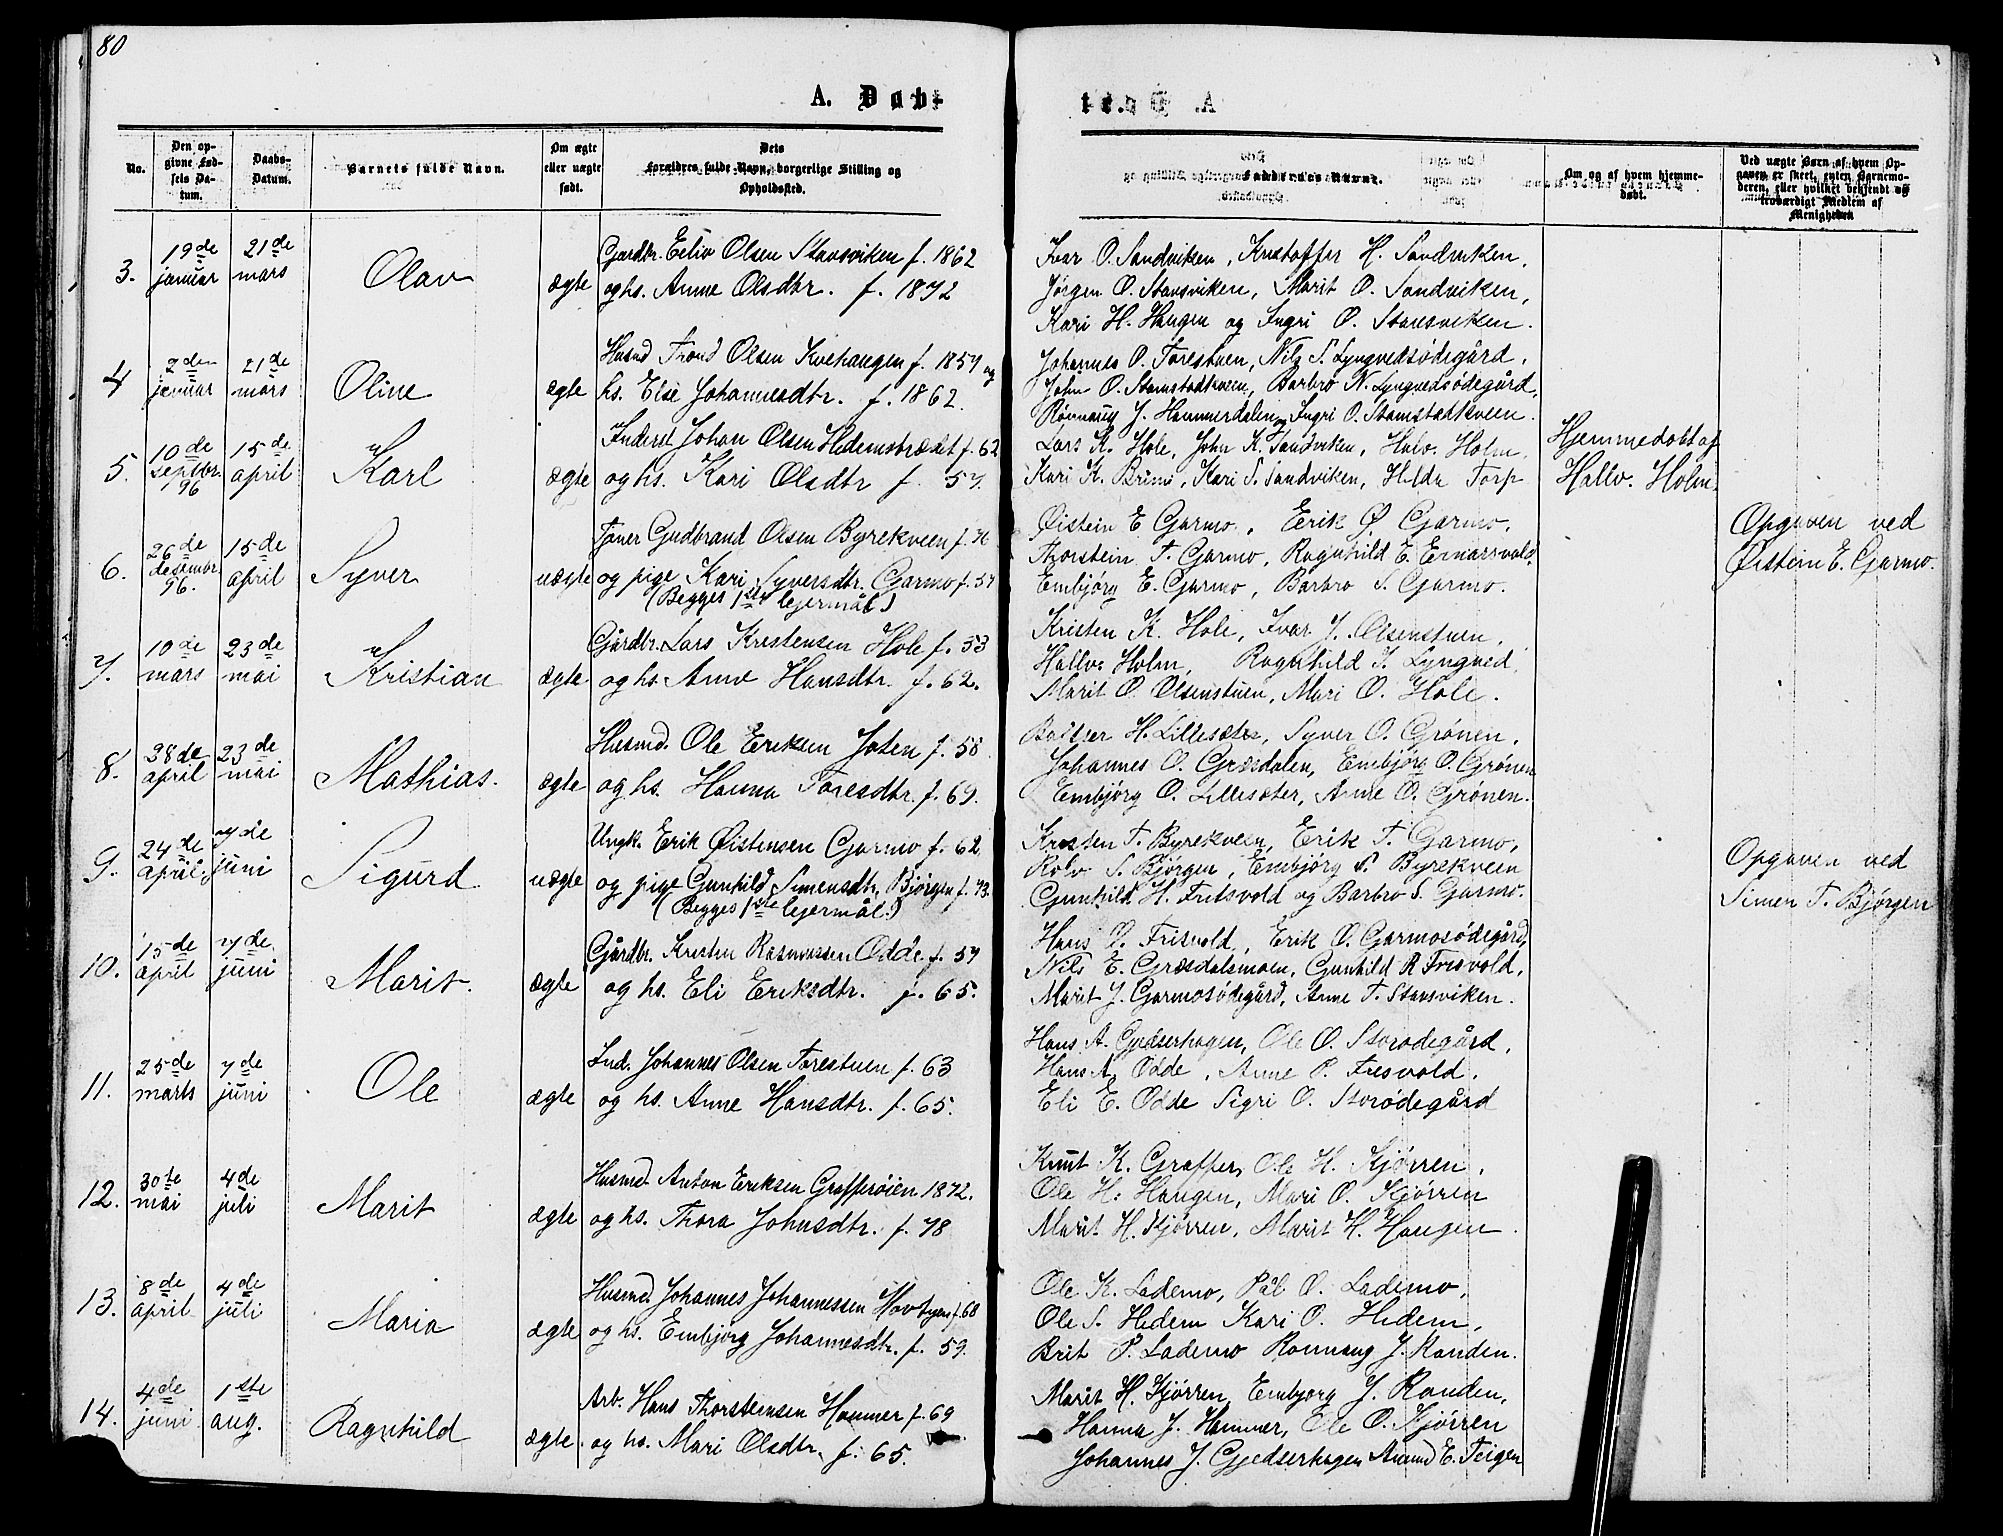 80
A. Døbte.
No.
Den opgivne Fødsels Datum.
Daabs-Datum.
Barnets fulde Navn.
Om ægte eller uægte født.
Dets Forældres fulde Navn, borgerlige Stilling og Opholdssted.
Faddernes Navne.
Om og af hvem hjemmedøbt.
Ved uægte Børn af hvem Opgaven er skeet, enten Barnemoderen, eller hvilket bekjendt og troværdigt Medlem af Menigheden
3. 19de januar 21de mars Olav ægte
Gardbr. Eiliv Olsen Stavsviken f. 1862
og hs. Anne Olsdtr. f. 1872
Ivar O. Sandviken, Kristoffer H. Sandviken,
Jørgen O. Stavsviken, Marit O. Sandviken,
Kari H. Haugen og Ingri O. Stavsviken.
4 2den januar 21de mars Oline ægte
Husmd Trond Olsen Kvehaugen f. 1857 og
hs. Else Johannesdtr. f. 1862.
Johannes O. Forestuen, Nils S. Lyngvedsødegård,
John O. Stamstadkveen, Barbro N. Lyngvedsødegård,
Rønnaug J. Hammerdalen og Ingri O. Stamstadkveen.
5. 10de septbr. 96 15de april Karl ægte
Inderst Johan Olsen Hedemstrædet f. 62
og hs. Kari Olsdtr f. 57.
Lars K. Hole, John K. Sandviken, Halv. Holm.
Kari K. Brimi, Kari S. Sandviken, Hilda Torp
Hjemmedøbt af
Hallv. Holm.
6. 26de desembr. 96. 15de april Syver uægte
Tjener Gudbrand Olsen Byrekveen f. 76
og pige Kari Syversdtr. Garmo f. 57
(Begges 1ste lejermål)
Øistein E. Garmo, Erik Ø. Garmo,
Thorstein T. Garmo, Ragnhild E. Einarsvold,
Embjørg E. Garmo, Barbro S. Garmo.
Opgaven ved
Øistein E. Garmo.
7. 10de mars 23de mai Kristian ægte
Gårdbr. Lars Kristensen Hole f. 53
og hs. Anne Hansdtr. f. 62.
Kristen K. Hole, Ivar J. Olsenstuen,
Hallv. Holm, Ragnhild I. Lyngved,
Marit O. Olsenstuen, Mari O. Hole.
8. 28de april 23de mai Mathias. ægte
Husmd. Ole Eriksen Joten f. 58
og hs. Hanna Toresdtr. f. 69.
Baltser H. Lillesæter, Syver O. Grønen,
Johannes O. Græsdalen, Embjørg O. Grønen
Embjørg O. Lillesæter, Anne O. Grønen.
9. 24de april. 7de juni Sigurd uægte
Ungk. Erik Øistensen Garmo f. 62
og pige Gunhild Simensdtr. Bjørgen f. 73.
(Begges 1ste lejermål.)
Kristen T. Byrekveen, Erik T. Garmo,
Rolv S. Bjørgen, Embjørg S. Byrekveen
Gunhild H. Frisvold og Barbro S. Garmo.
Opgaven ved
Simen T. Bjørgen
10. 15de april 7de juni Marit. ægte
Gårdbr. Kristen Rasmussen Odde f. 57
og hs. Eli Eriksdtr. f. 65.
Hans O. Frisvold, Erik O. Garmosødegård,
Nils E. Græsdalsmoen, Gunhild R. Frisvold,
Marit J. Garmosødegård, Anne T. Stavsviken.
11. 25de marts 7de juni Ole ægte
Ind. Johannes Olsen Forestuen f. 63
og hs. Anne Hansdtr. f. 65.
Hans A. Gjedserhagen, Ole O. Storødegård,
Hans A. Odde, Anne P. Frisvold,
Eli E. Odde Sigri O. Storødegård
12. 30te mai 4de juli Marit ægte
Husmd. Anton Eriksen Grafferøien 1872.
og hs. Thora Johnsdtr. f. 78
Knut K. Graffer, Ole H. Kjørren,
Ole H. Haugen, Mari O. Kjørren
Marit H. Kjørren, Marit H. Haugen.
13. 8de april 4de juli Maria ægte
Husmd. Johannes Johannessen f. 68
og hs. Embjørg Johannesdtr. f. 59.
Ole K. Lademo, Pål O. Lademo,
Ole S. Hedem Kari O. Hedem,
Brit P. Lademo Rønnaug J. Randen.
14. 4de juni 1ste aug. Ragnhild ægte.
Arb. Hans Thorsteinsen Hammer f. 69
og hs. Mari Olsdtr. f. 65.
Marit H. Kjørren, Embjørg J. Randen,
Hanna J. Hammer, Ole O. Kjørren
Johannes J. Gjedserhagen Amund E. Teigen